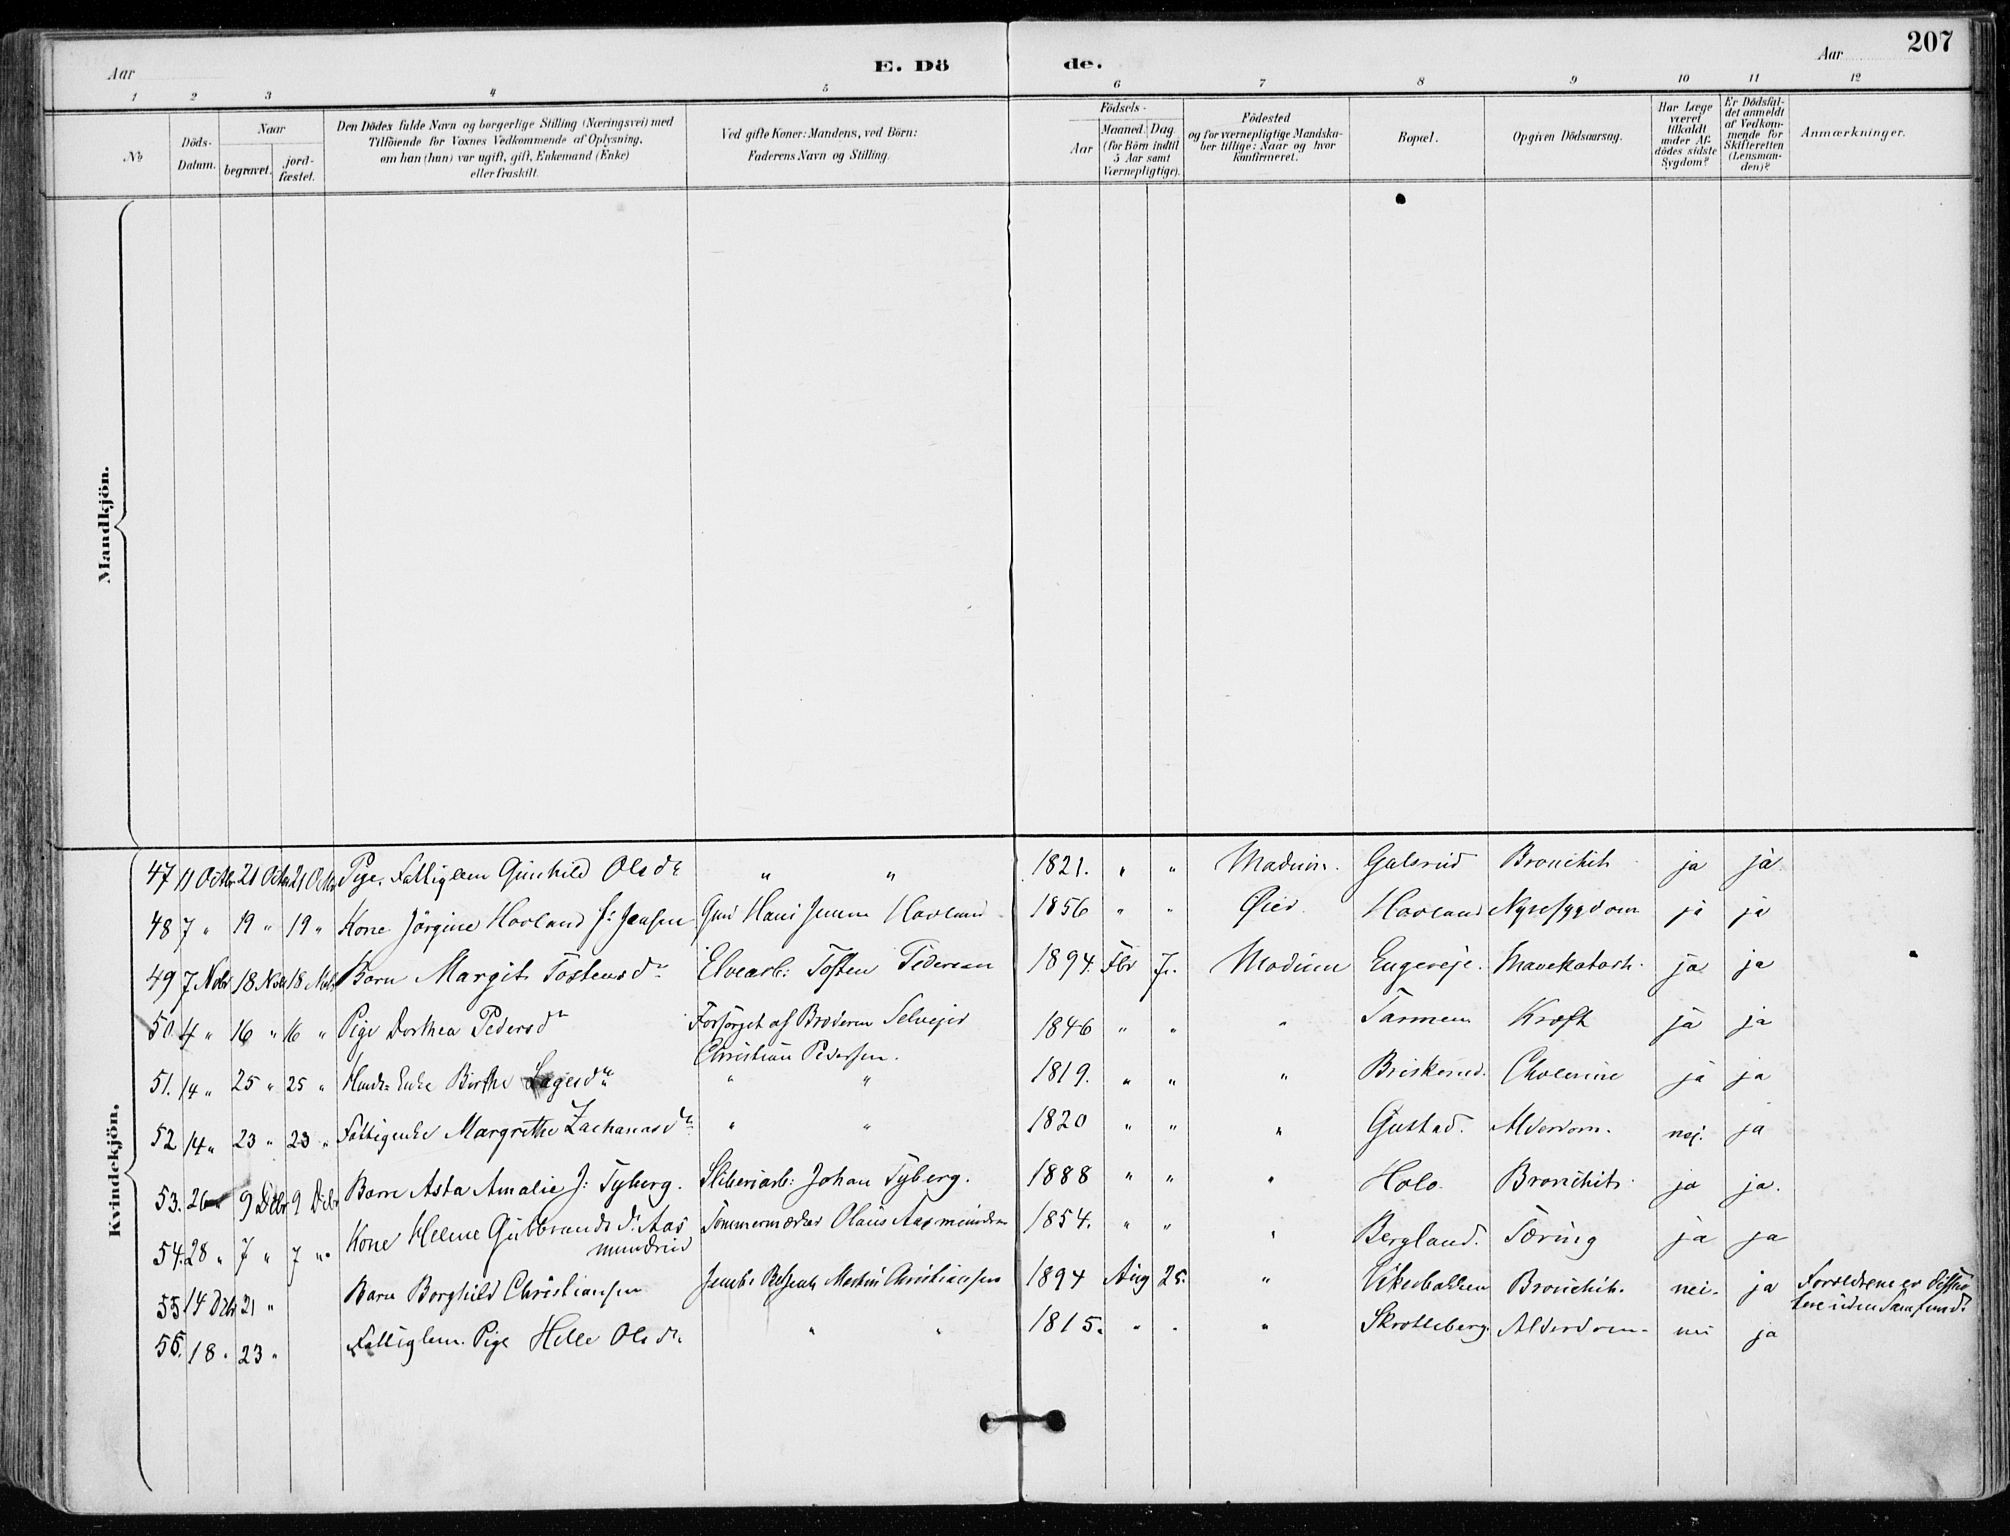 207
Aar E. Dö de. Aar
1 2 3 4 5 6 7 8 9 10 11 12
No
Döds-Datum.
Naar
begravet.
jord-fæstet.
Den Dödes fulde Navn og borgerlige Stilling (Næringsvei) med
Tilföiende for Voxnes Vedkommende af Oplysning,
om han (hun) var ugift, gift, Enkemand (Enke)
eller fraskilt.
Ved gifte Koner: Mandens, ved Börn:
Faderens Navn og Stilling.
Födsels-
Aar
Maaned. Dag
(for Börn indtil
5 Aar samt
Værnepligtige).
Födested
og for værnepligtige Mandska-
ber tillige: Naar og hvor
konfirmeret.
Bopæl.
Opgiven Dödsaarsag.
Har Læge
været
tilkaldt
under Af-
dödes sidste
Sygdom?
Er Dödsfal-
det anmeldt
af Vedkom-
mende for
Skifteretten
(Lensman-
den)?
Anmærkninger.
Mandkjön.
Kvindekjön.
47 11 Octbr 21 Octbr 21 Octbr Pige, Fattiglem Gunhild Olsdr " " 1821. " " Modum. Gulsrud Bronchit ja ja
48 7 " 19 " 19 " Kone Jörgine Hovland f: Jensen Hans Jensen Hovland 1856 " " Öier Hovland Nyresygdom ja ja
49 7 Nobr 18 Nobr 18 Nobr Barn Margit Tostensdr Elvearb: Tosten Pedersen 1894. Fbr 7. Modum Mavekatarrh. ja ja
50. 4 " 16 " 16 " Pige Dorthea Pedersdr Forsörget af Broderen Selveier
Christian Pedersen. 1846 " " " Kræft ja ja
51. 14 " 25 " 25 " Enke Birthe " " 1819. " " " Briskerud. Cholerine ja ja
52 14 " 23 " 23 " Fattigenke Margrethe Zachariasdr " " 1820 " " " Gustad. Alderdom. nej. ja
53. 26 9 Dcbr 9 Dcbr Barn Asta Amalie J: Tyberg. Sliberiarb: Johan Tyberg. 1888 " " " Holo Bronchit. ja ja.
54. 28 " 7 " 7 " Kone Helene Gulbrandsdr Aas
mundrud Tømmermærker Olaus Aasmundrud 1854. " " " Bergland. Tæring ja ja
55 14 Dcbr 21 " Barn Borghild Christiansen Martin Christiansen 1894 Aug 25. " Bronchit. nei. ja Forældrene er dissen
tere uden Samfund.
56. 18. 23 " Fattiglem. Pige Helle Olsdr " " 1815. " " " Skrotleberg. Alderdom. nei ja